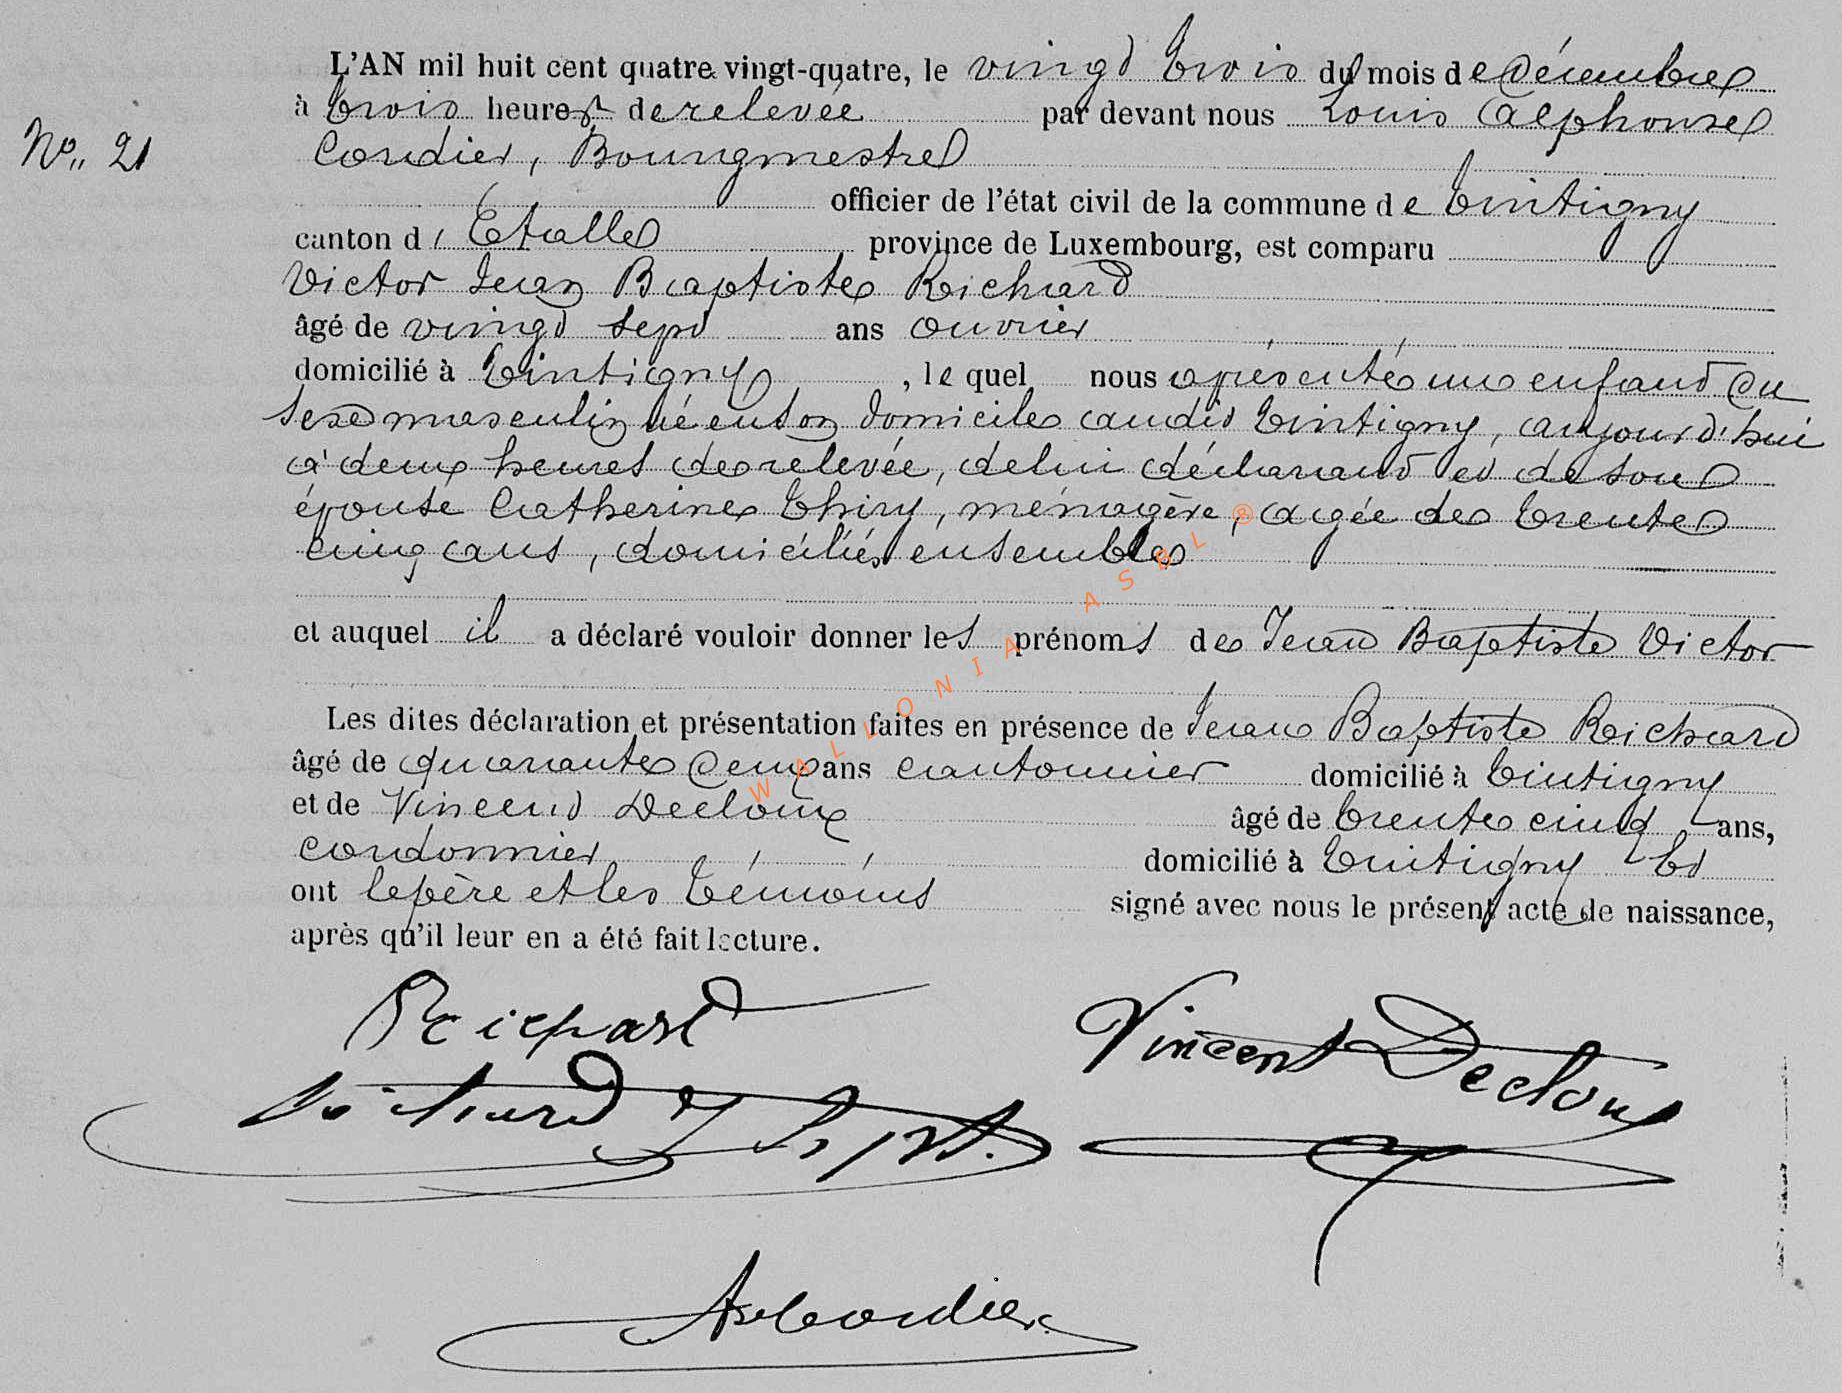 L'AN mil huit cent quatre vingt-quatre, le vingt trois du mois de Décembre
à trois heures de relevée par devant nous Louis Alphonse
N°. 21
Cordier, Bourgmestre
officier de l'état civil de la commune de Tintigny
canton d'Etalle province de Luxembourg, est comparu
Victor Jean Baptiste Richard
âgé de vingt sept ans ouvrier
domicilié à Tintigny, lequel nous a présenté un enfant du
sexe masculin né en son domicile audit Tintigny, aujourd'hui
à deux heures de relevée, de lui déclarant et de son
épouse Catherine Thiry, ménagère, agée de trente
cinq ans, domiciliés ensemble
et auquel il a déclaré vouloir donner les prénoms de Jean Baptiste Victor
Les dites déclaration et présentation faites en présence de Jean Baptiste Richard
âgé de quarante deux ans cantonnier domicilié à Tintigny
et de Vincent Decloux âgé de trente cinq ans,
cordonnier domicilié à Tintigny Et
ont le père et les témoins signé avec nous le présent acte de naissance,
après qu'il leur en a été fait lecture.
Richard
Vincent Decloux
Richard J Bapst.
A Cordier
WALLONIA ASBL ®